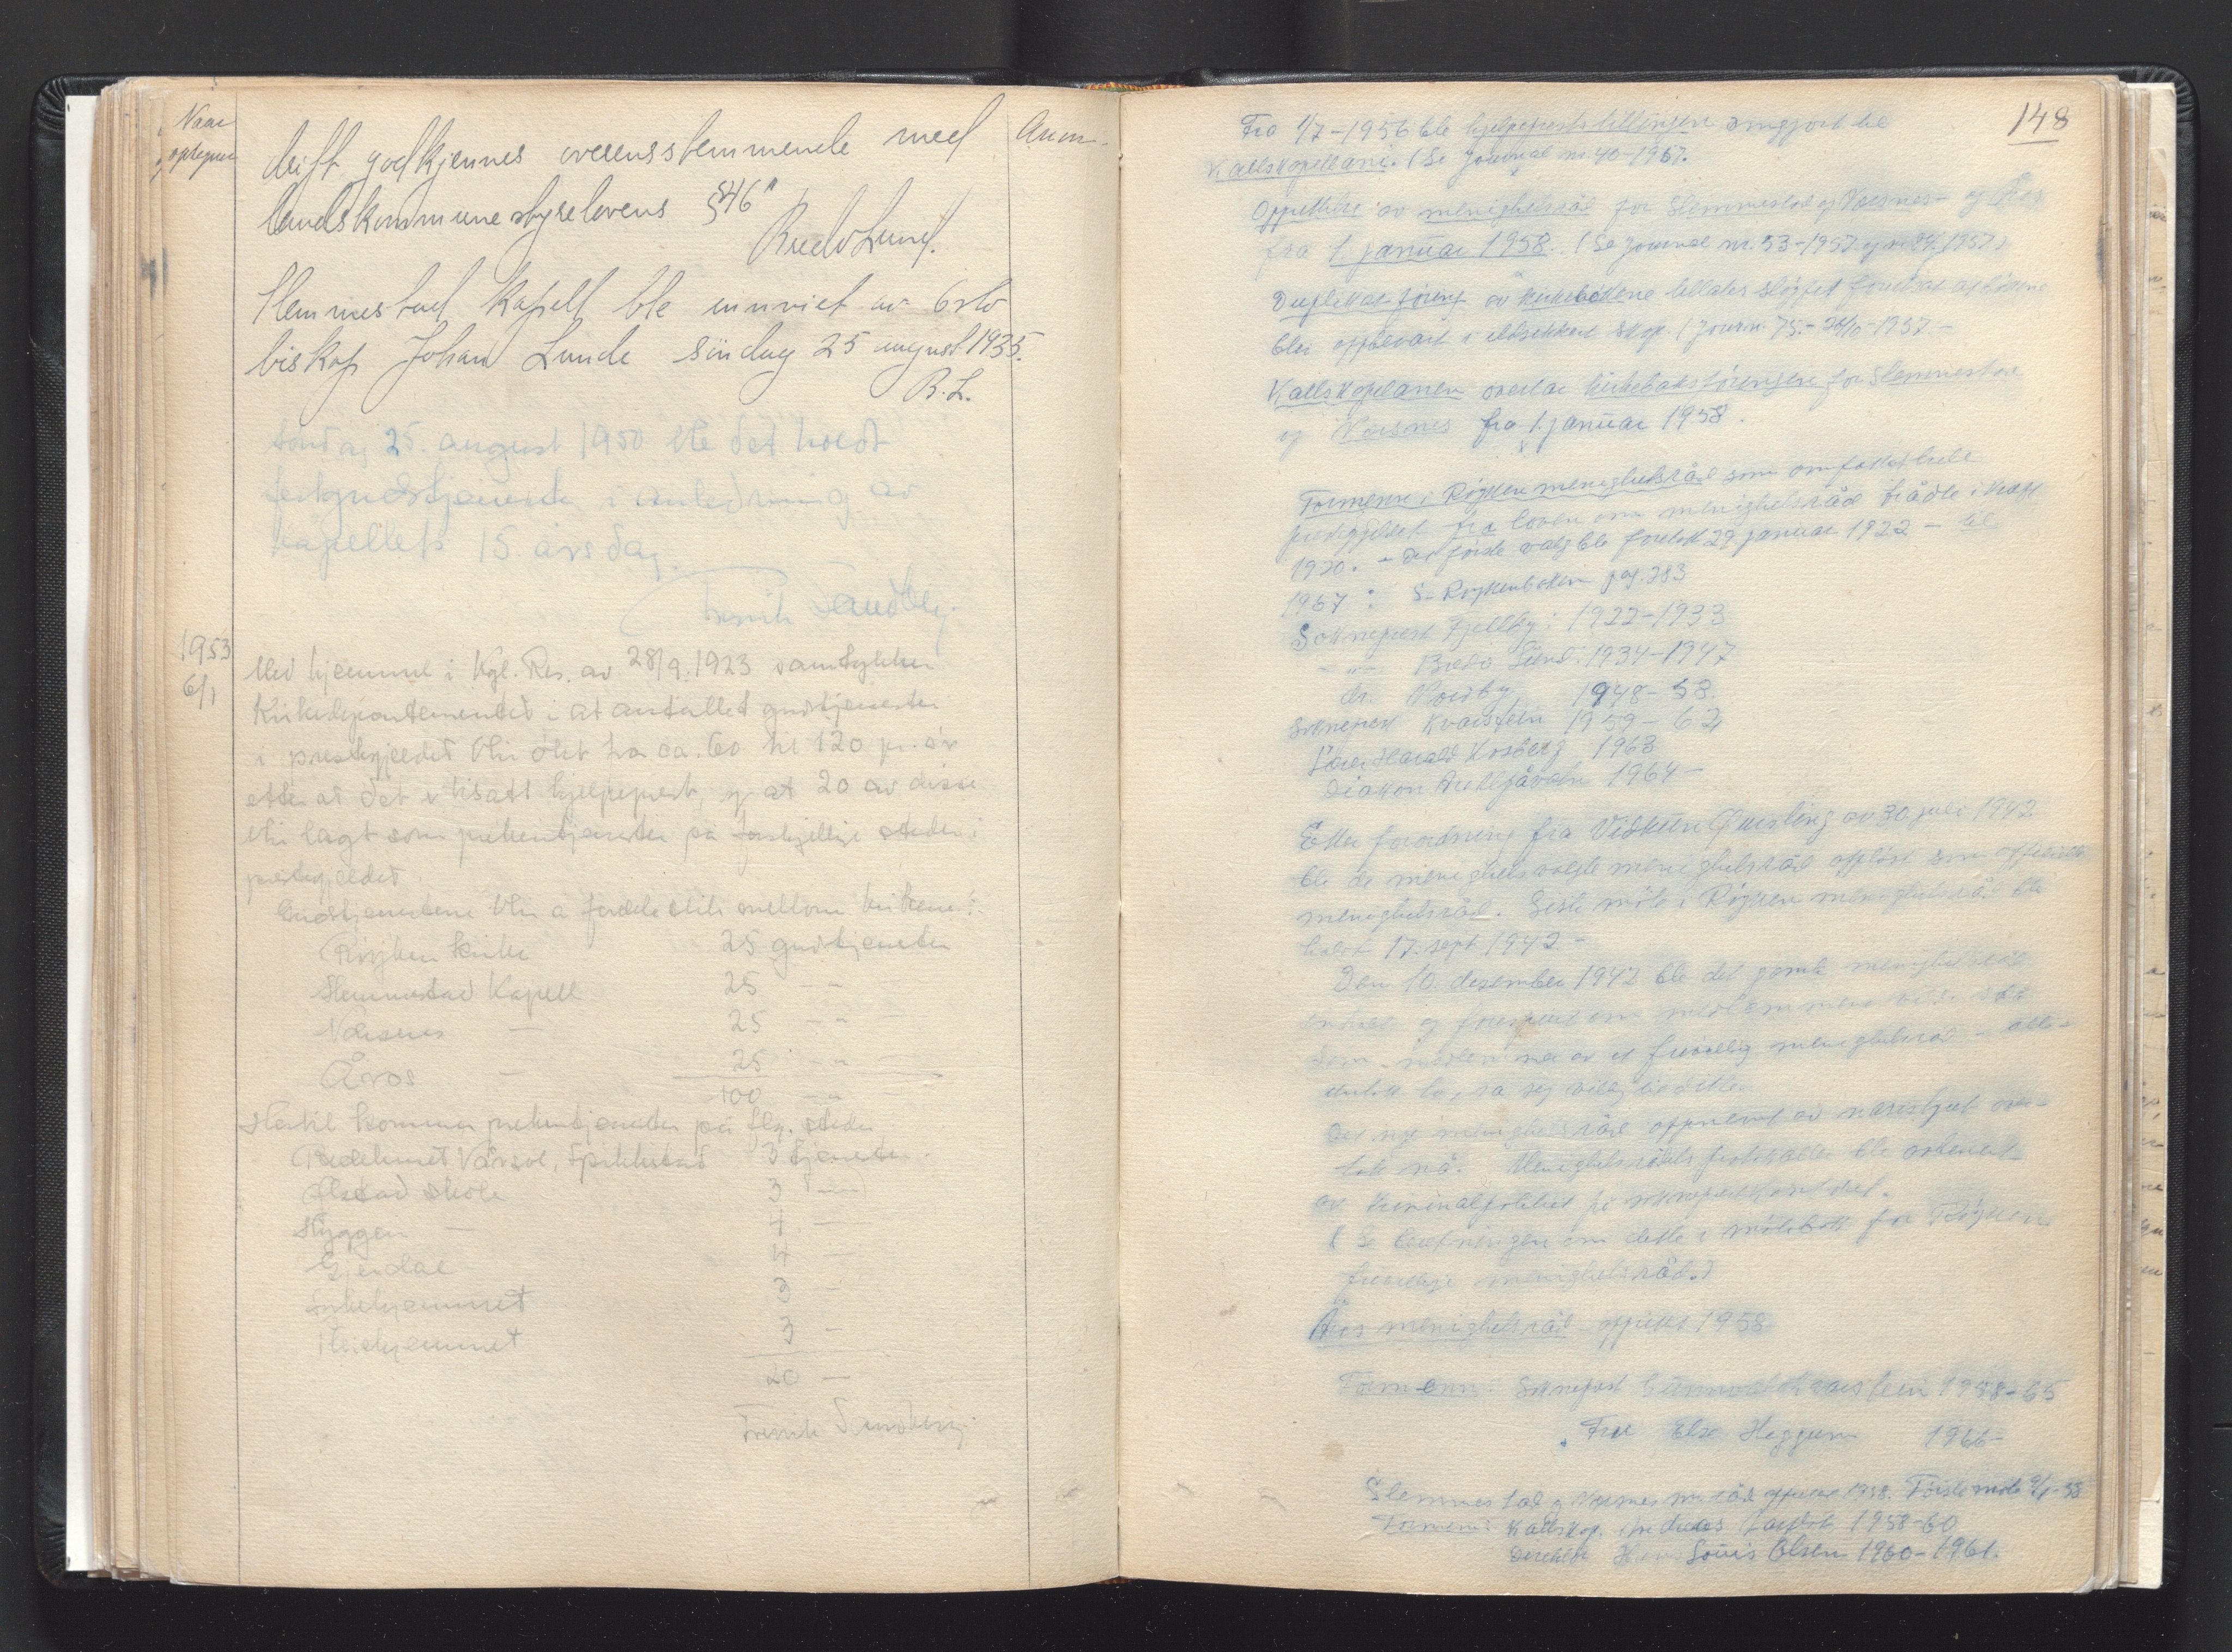 Naar
optegnet
Anm.
drift godkjennes overensstemmende med
landskommunestyrelovens §46"
Bredo Lund.
Slemmestad Kapell ble innviet av Oslo
biskop Johan Lunde søndag 25 august 1935.
B.L.
Søndag 25. august 1950 ble det holdt
festgudstjeneste i anledning av
kapellets 15. årsdag.
1953
6/1
Med hjemmel i Kgl. Res. av 28/9.1923 samtykker
Kirkedepartementet i at antallet gudstjenester
i prestegjeldet blir øket fra ca. 60 til 120 pr. år
etter at det er tilsatt hjelpeprest, og at 20 av disse
blir lagt som prekentjenester på forskjellige steder i
prestegjeldet
Gudstjenestene blir å fordele slik mellom kirkene:
Røyken kirke 25 gudstjenester
Slemmestad Kapell 25 - " -
Nærsnes — 25 - " -
Åros — 25 - " -
100 - " -
Hertil kommer prekentjenester på flg. steder
Bedehuset Vårsol, Spikkestad 3 tjenester.
skole 3 —
Hyggen — 4 —
4
3 —
3 —
20 —
148
Fra 1/7-1956 ble hjelpepreststillingen omgjort til
Kallskapellani. (Se Journal nr 40-1957.
Opprettelse av menighetsråd for Slemmestad og Nærsnes- og Åros
fra 1 januar 1958. (Se Journal nr. 53-1957 og nr 1957)
Duplikatføring av kirkebøkene tillates sløyfet forutsatt at bøkene
blir oppbevart i ildsikkert skap. (Journ. 75.- 26/10-1957 -
Kallskapellanen overtar kirkebokføringen for Slemmestad
og Nærsnes fra 1. januar 1958.
Formenn i Røyken menighetsråd som omfattet hele
prestegjeldet fra loven om menighetsråd trådte i kraft
1920. - Det første valg ble foretatt 29 januar 1922 - til
1967: Se Røykenboken pag. 283
Sokneprest Fjellby: 1922-1933
- " - Bredo Lund: 1934-1947
1948-58.
Sokneprest Kvarstein 1959-62
Harald Kosberg 1963
Diakon 1964-
Etter forordning fra Vidkun Quisling av 30 juli 1942
ble de menighetsvalgte menighetsråd oppløst som offisielle
menighetsråd. Siste møte i Røyken menighetsråd ble
holdt 17. sept 1942 -
Den 10. desember 1942 ble det gamle menighetsråd
og forespurt om medlemmene ville stå
som medlemmer av et frivillig menighetsråd - alle -
unntatt to, sa seg villig til dette.
Det nye menighetsråd oppnevnt av nazistyret over-
tok nå. Menighetsrådets protokoller ble
av kriminalpolitiet på sokneprestkontoret.
(Se beretningen om dette i møtebok for Røyken
frivillige menighetsråd.)
Åros menighetsråd opprettet 1958.
Formenn: Sokneprest Kvarstein 1958-65
Fru Else Heggum 1966-
Slemmestad og Nærsnes m.råd opprettet 1958. Første møte 9/1-58
Formenn: Kallskap. Andreas 1958-60
Louis Olsen 1960-1961.